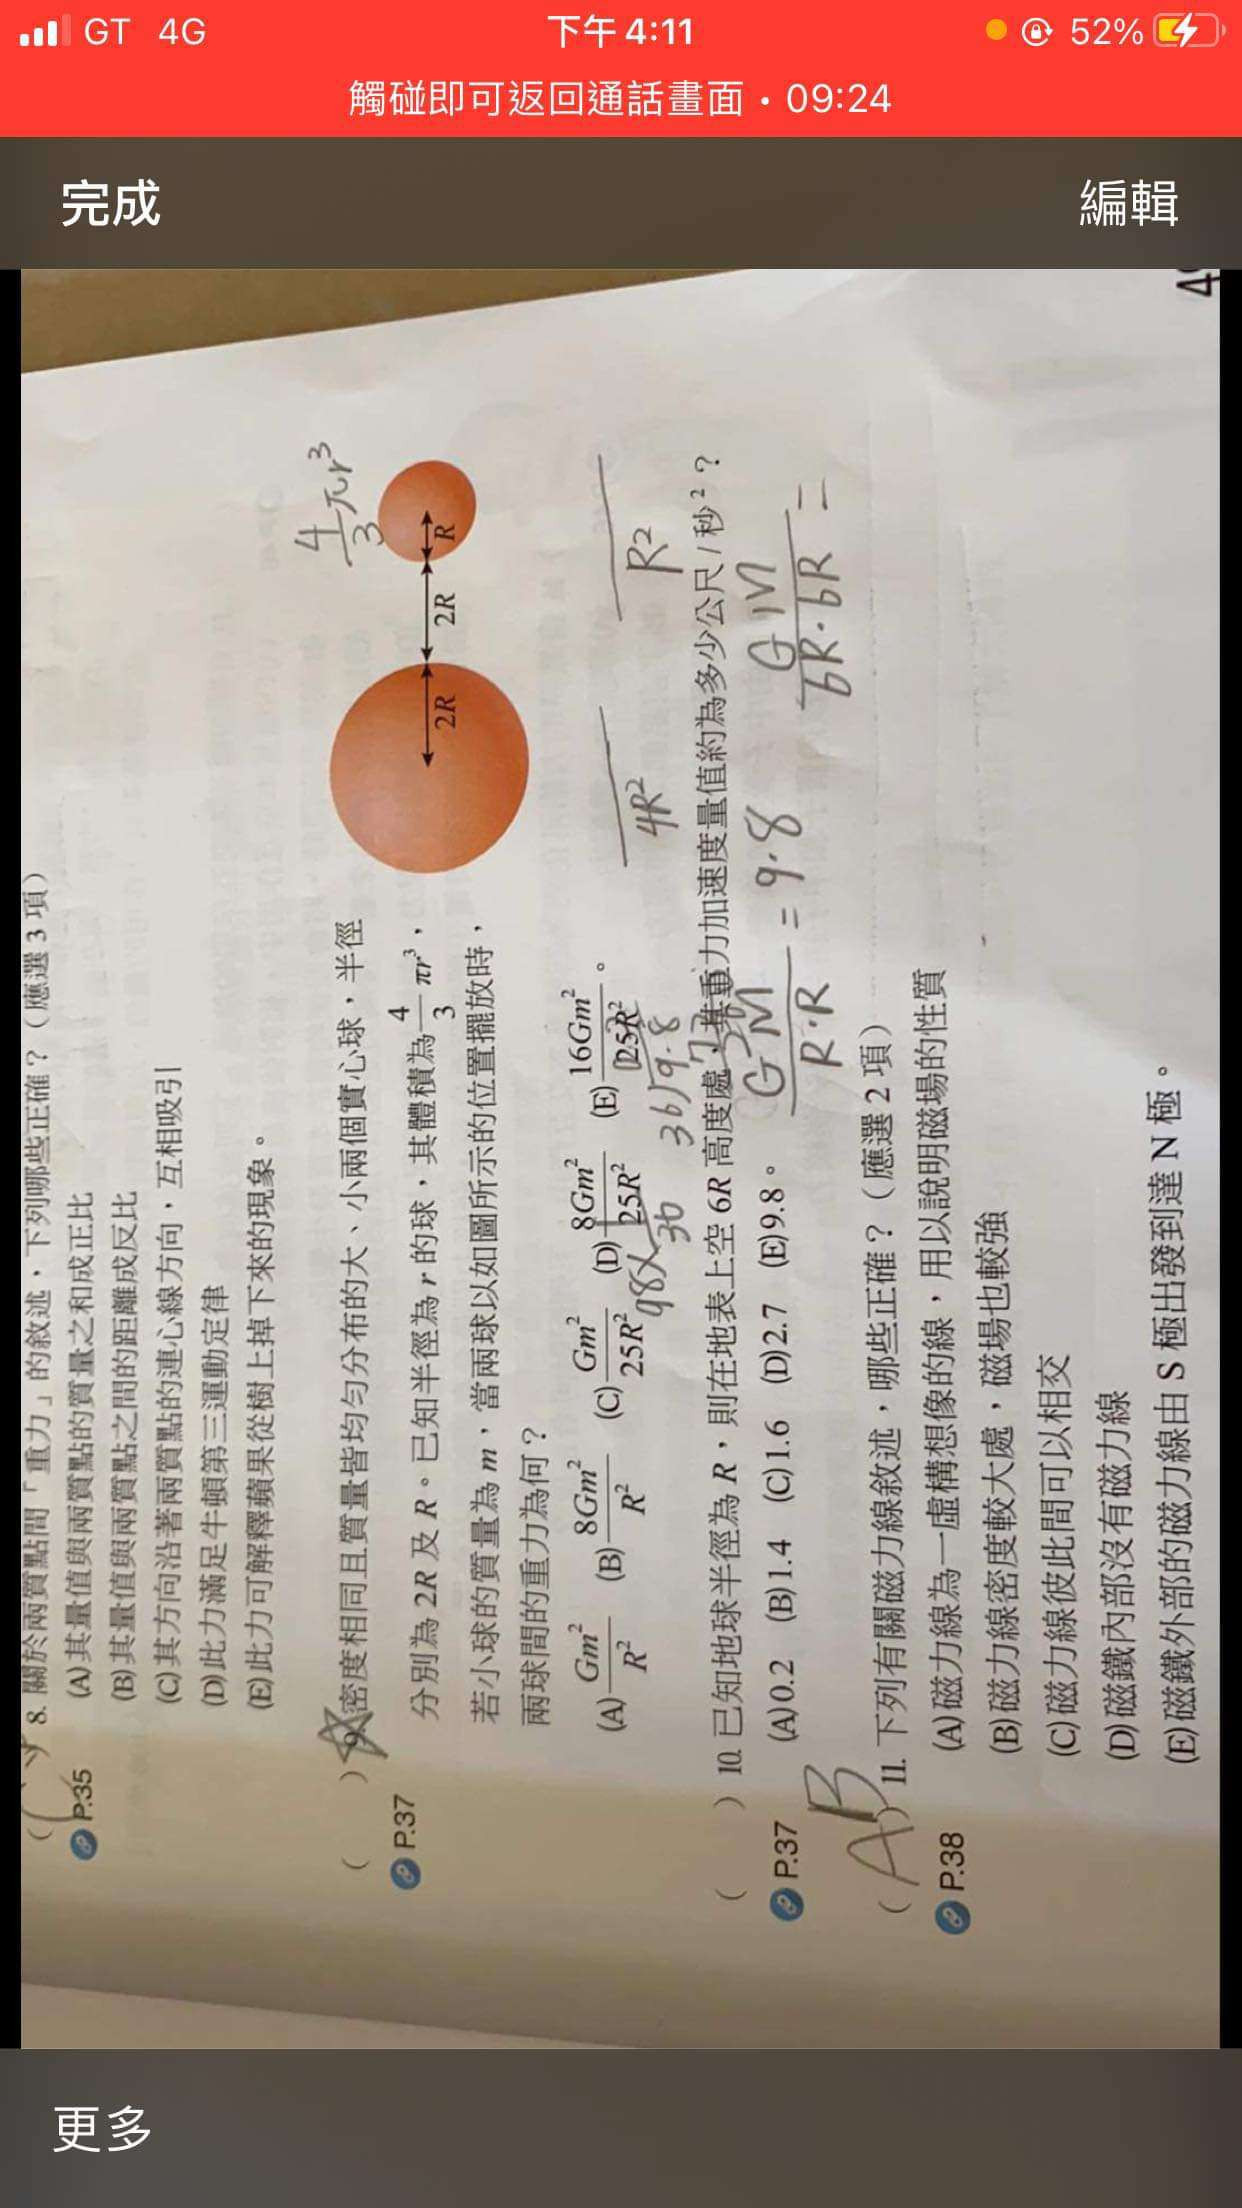 GT 4G 下午4:11 52%
觸碰即可返回通話畫面 • 09:24
完成 編輯
8. 關於兩質點間「重力」的敘述，下列哪些正確？（應選 3 項）
P.35
(A)其量值與兩質點的質量之和成正比
(B)其量值與兩質點之間的距離成反比
(C)其方向沿著兩質點的連心線方向，互相吸引
(D)此力滿足牛頓第三運動定律
(E)此力可解釋蘋果從樹上掉下來的現象。
( ) 9. 密度相同且質量皆均勻分布的大、小兩個實心球，半徑
P.37
分別為 2R 及 R。已知半徑為 r 的球，其體積為 4/3 πr³，
若小球的質量為 m，當兩球以如圖所示的位置擺放時，
兩球間的重力為何？
(A) Gm²/R² (B) 8Gm²/R² (C) Gm²/25R² (D) 8Gm²/25R² (E) 16Gm²/25R²。
2R 2R R
4/3 πr³
4R² R²
98 × 1/36
36)9.8
( ) 10. 已知地球半徑為 R，則在地表上空 6R 高度處，其重力加速度量值約為多少公尺/秒²？
P.37
(A)0.2 (B)1.4 (C)1.6 (D)2.7 (E)9.8。
GM/R·R = 9.8 GM/6R·6R =
(AB) 11. 下列有關磁力線敘述，哪些正確？（應選 2 項）
P.38
(A)磁力線為一虛構想像的線，用以說明磁場的性質
(B)磁力線密度較大處，磁場也較強
(C)磁力線彼此間可以相交
(D)磁鐵內部沒有磁力線
(E)磁鐵外部的磁力線由 S 極出發到達 N 極。
更多